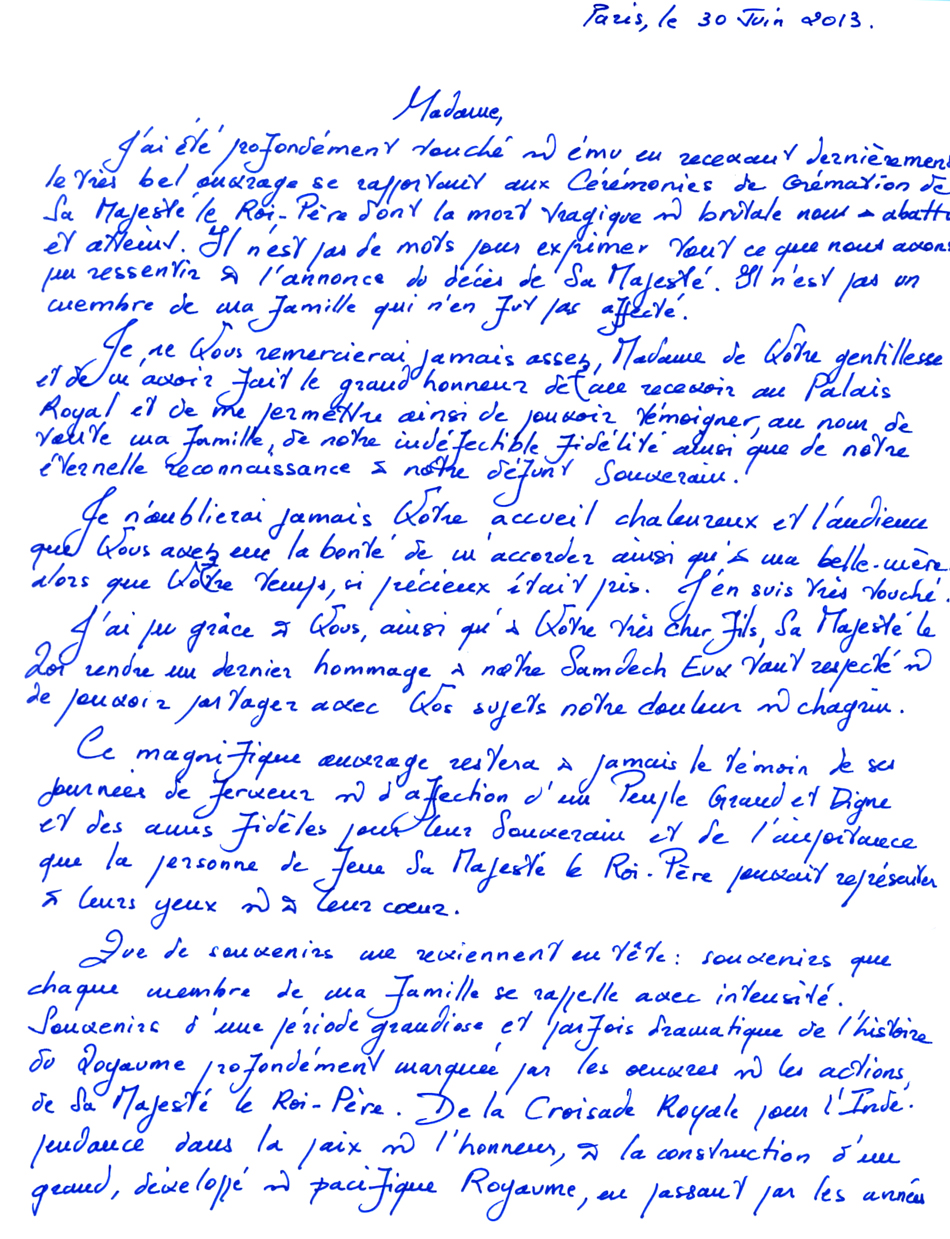 Paris, le 30 Juin 2013.
Madame,
J'ai été profondément touché et ému en recevant dernièrement
le très bel ouvrage se rapportant aux Cérémonies de Crémation de
Sa Majesté le Roi-Père dont la mort tragique et brutale nous a abattu
et atteint. Il n'est pas de mots pour exprimer tout ce que nous avons
pu ressentir à l'annonce du décès de Sa Majesté. Il n'est pas un
membre de ma famille qui n'en fut pas affecté.
Je ne Vous remercierai jamais assez, Madame de Votre gentillesse
et de m'avoir fait le grand honneur de me recevoir au Palais
Royal et de me permettre ainsi de pouvoir témoigner, au nom de
toute ma famille, de notre indéfectible fidélité ainsi que de notre
éternelle reconnaissance à notre défunt Souverain.
Je n'oublierai jamais Votre accueil chaleureux et l'audience
que Vous avez eue la bonté de m'accorder ainsi qu'à ma belle-mère
alors que Votre temps, si précieux était pris. J'en suis très touché.
J'ai pu grâce à Vous, ainsi qu'à Votre très cher Fils, Sa Majesté le
Roi rendre un dernier hommage à notre Samdech Euv tant respecté et
de pouvoir partager avec Vos sujets notre douleur et chagrin.
Ce magnifique ouvrage restera à jamais le témoin de ses
journées de ferveur et d'affection d'un Peuple Grand et Digne
et des amis fidèles pour leur Souverain et de l'importance
que la personne de feue Sa Majesté le Roi-Père pouvait représenter
à leurs yeux et à leur cœur.
Que de souvenirs me reviennent en tête : souvenirs que
chaque membre de ma famille se rappelle avec intensité.
Souvenirs d'une période grandiose et parfois dramatique de l'histoire
du Royaume profondément marquée par les oeuvres et les actions
de Sa Majesté le Roi-Père. De la Croisade Royale pour l'Indé-
pendance dans la paix et l'honneur, à la construction d'un
grand, développé et pacifique Royaume, en passant par les années